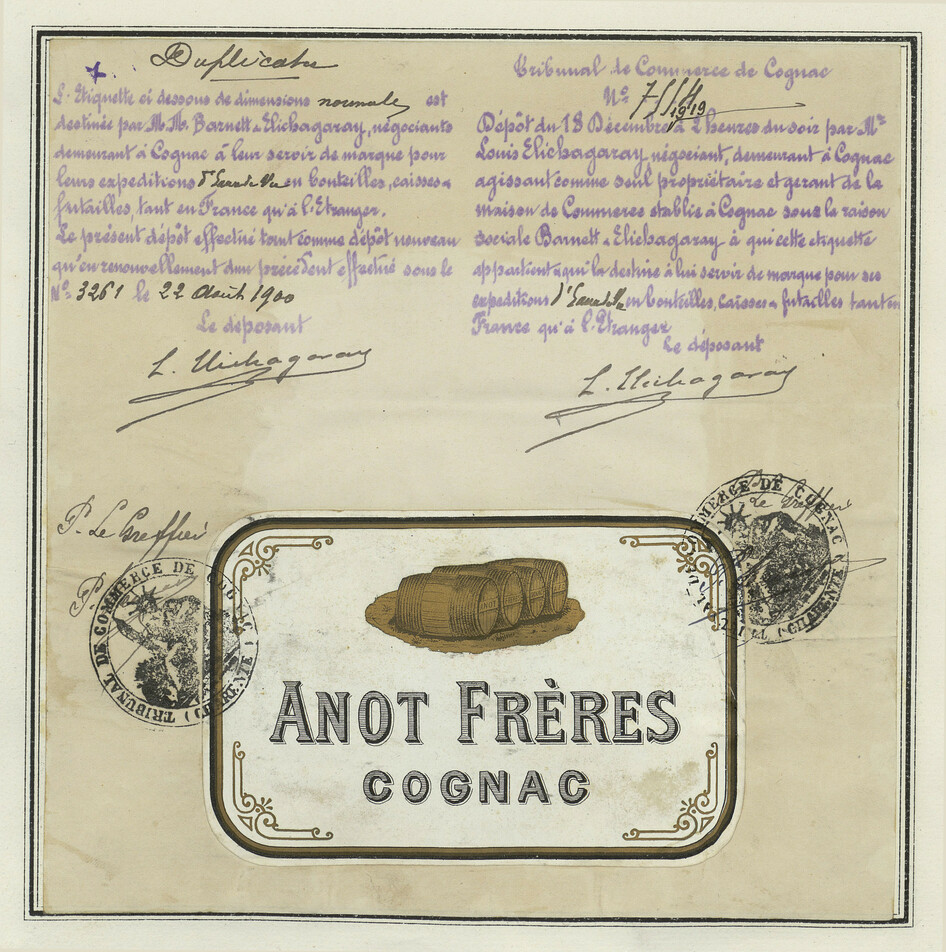 Duplicata
L'Etiquette ci dessous de dimensions normales est
destinée par M.M. Barnett & Elichagaray, négociants
demeurant à Cognac à leur servir de marque pour
leurs expeditions d'Eau de Vie en bouteilles, caisses &
futailles, tant en France qu'à l'Etranger.
Le présent dépôt effectué tout comme dépôt nouveau
qu'en renouvellement d'un précédent effectué sous le
N° 3261 le 22 Août 1900
Le déposant
L. Elichagaray
Tribunal de Commerce de Cognac
N°
1919
Dépôt du 18 Décembre à 2 heures du soir par Mr
Louis Elichagaray négociant, demeurant à Cognac
agissant comme seul propriétaire et gerant de la
maison de Commerce etablie à Cognac sous la raison
sociale Barnett & Elichagaray à qui cette etiquette
appartient & qui la destine à lui servir de marque pour ses
expeditions d'Eau de Vie en bouteilles, caisses & futailles tant en
France qu'à l'Etranger
Le déposant
L. Elichagaray
P. Le Greffier
P.
TRIBUNAL DE COMMERCE DE COGNAC (CHARENTE)
Le Greffier
COMMERCE DE COGNAC (CHARENTE)
ANOT FRÈRES
COGNAC